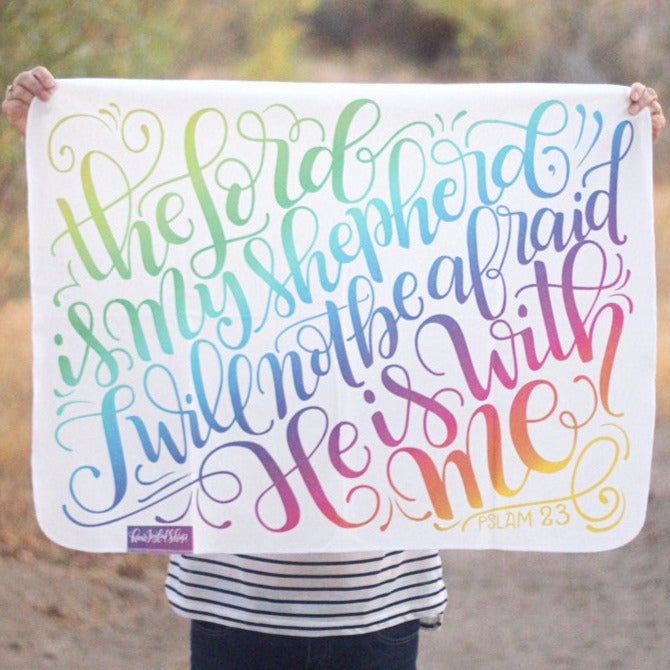 the Lord
is my shepherd,
I will not be afraid
He is with
me
PSLAM 23
how Joyful Shop